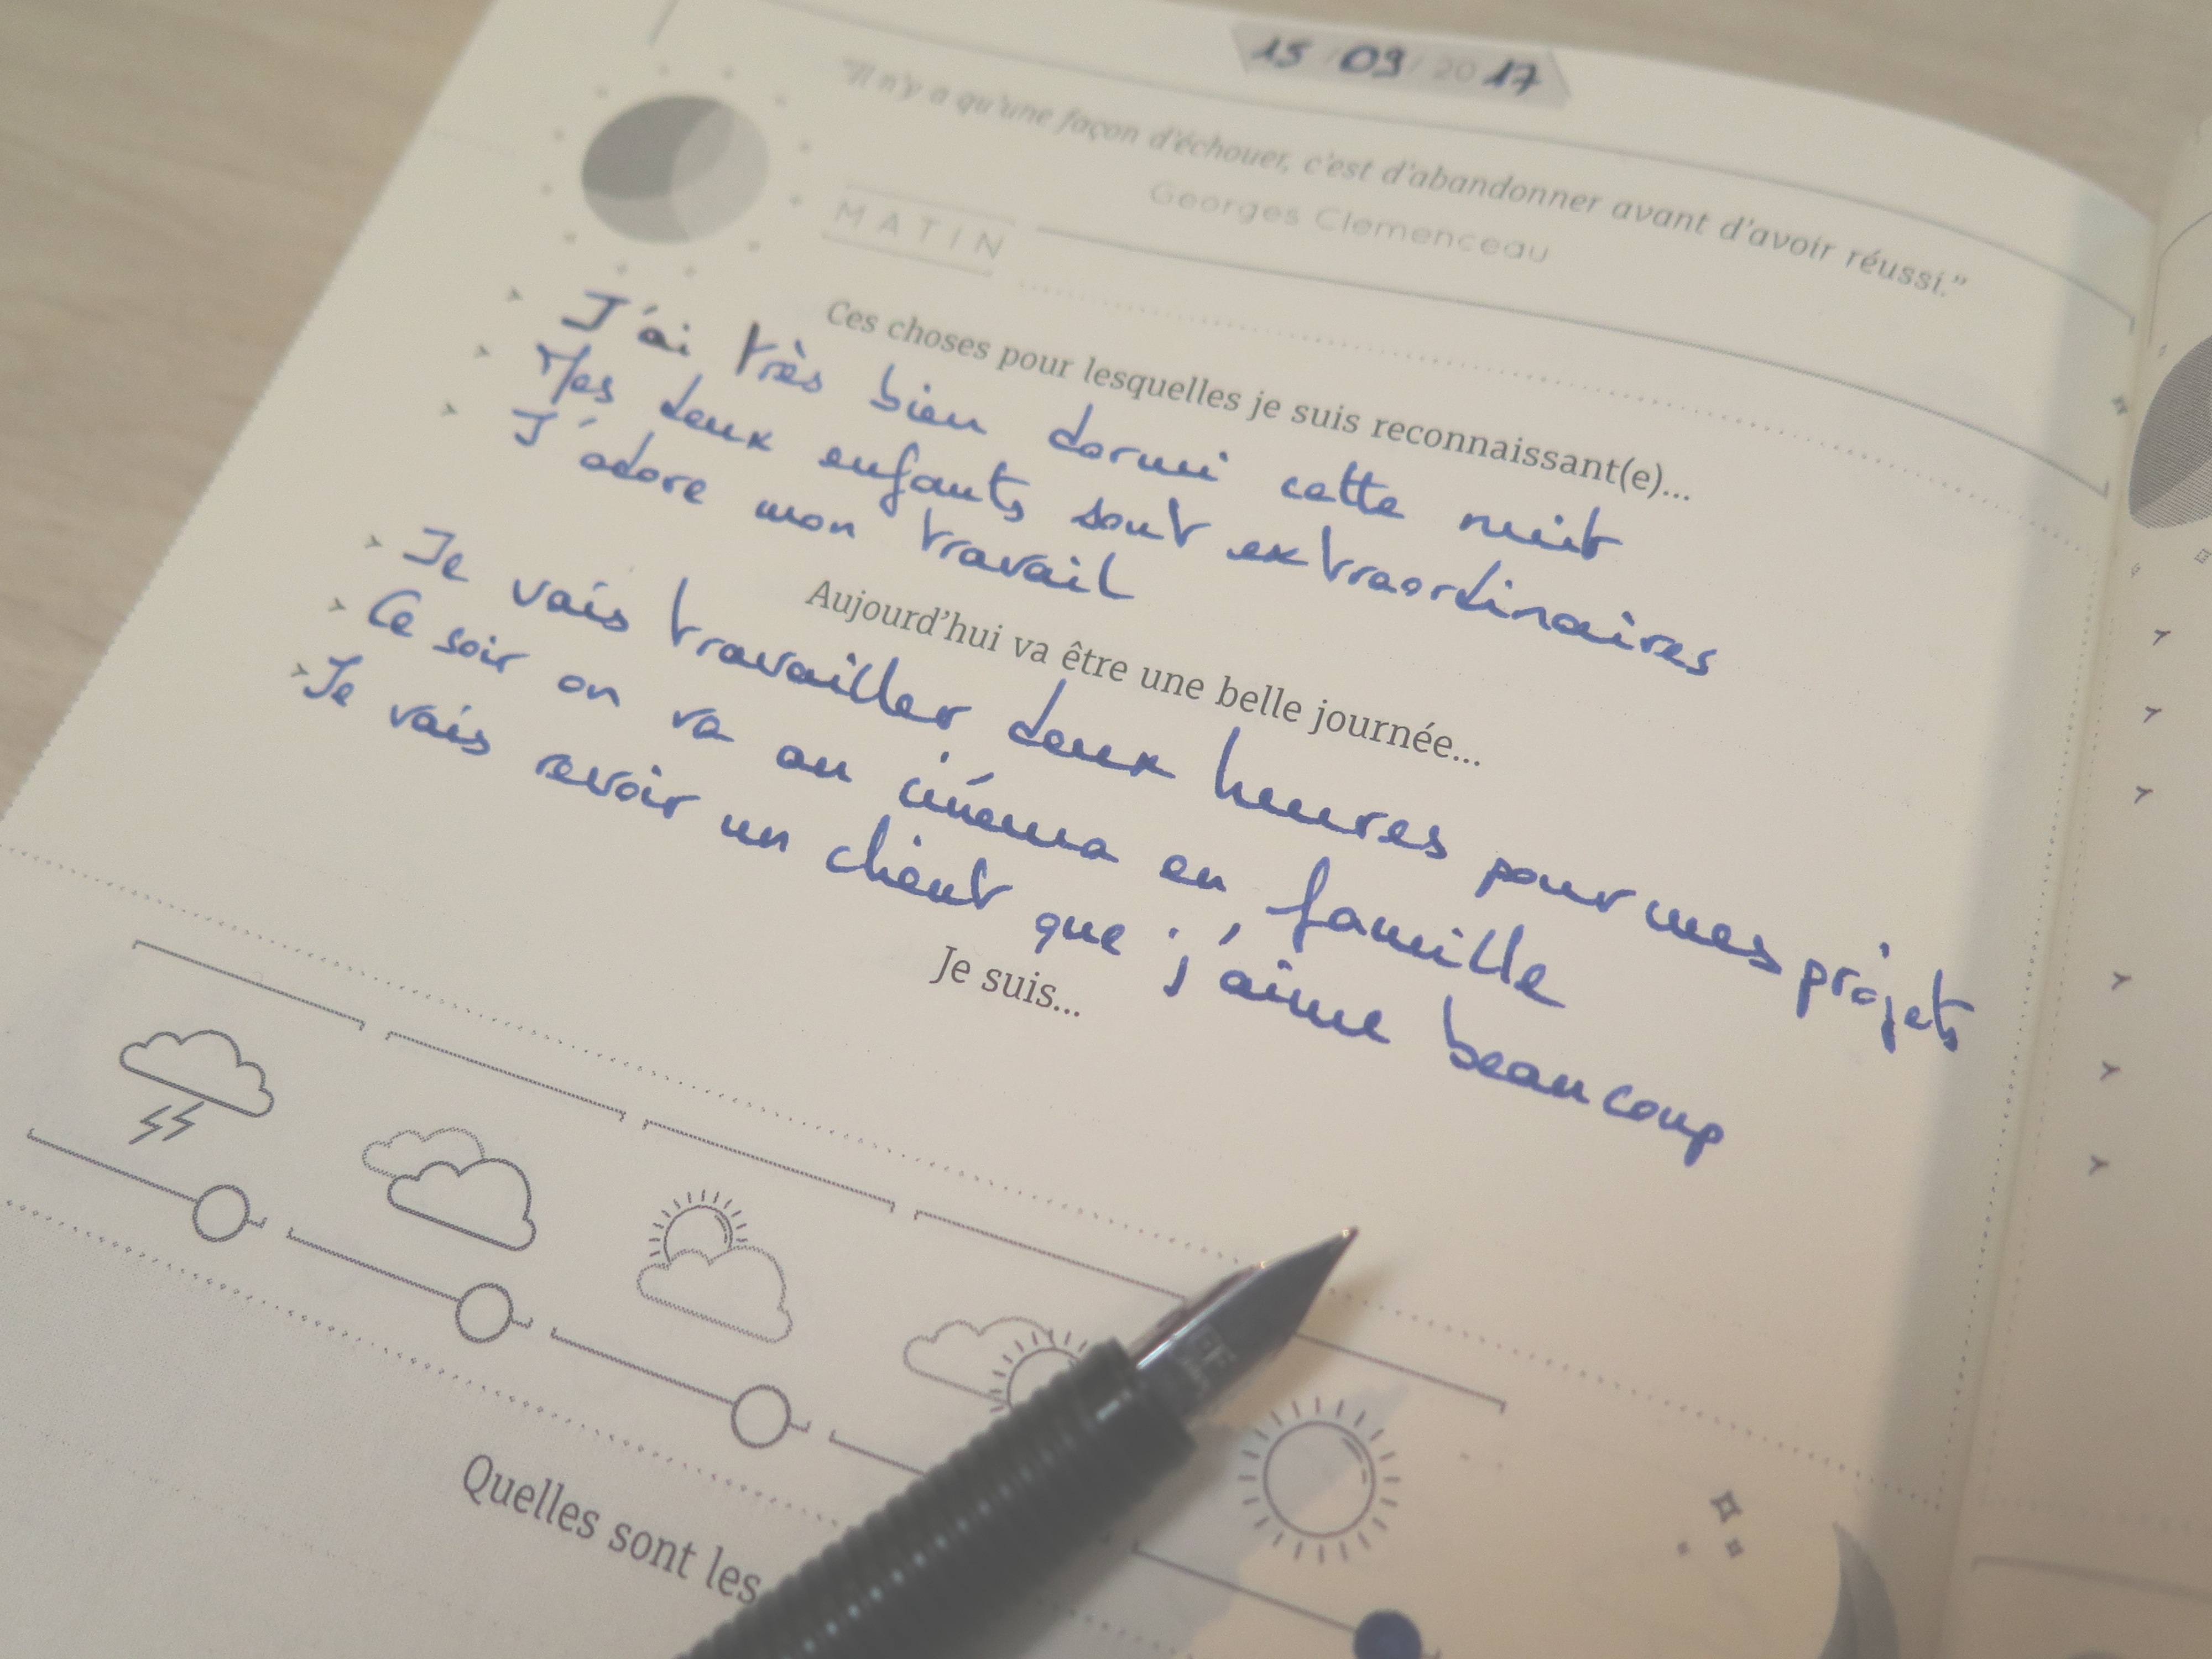 15/09/2017
"Il n'y a qu'une façon d'échouer, c'est d'abandonner avant d'avoir réussi."
Georges Clemenceau
MATIN
Ces choses pour lesquelles je suis reconnaissant(e)...
J'ai très bien dormi cette nuit
Mes deux enfants sont extraordinaires
J'adore mon travail
Aujourd'hui va être une belle journée...
Je vais travailler deux heures pour mes projets
Ce soir on va au cinéma en famille
Je vais revoir un client que j'aime beaucoup
Je suis...
EF
Quelles sont les